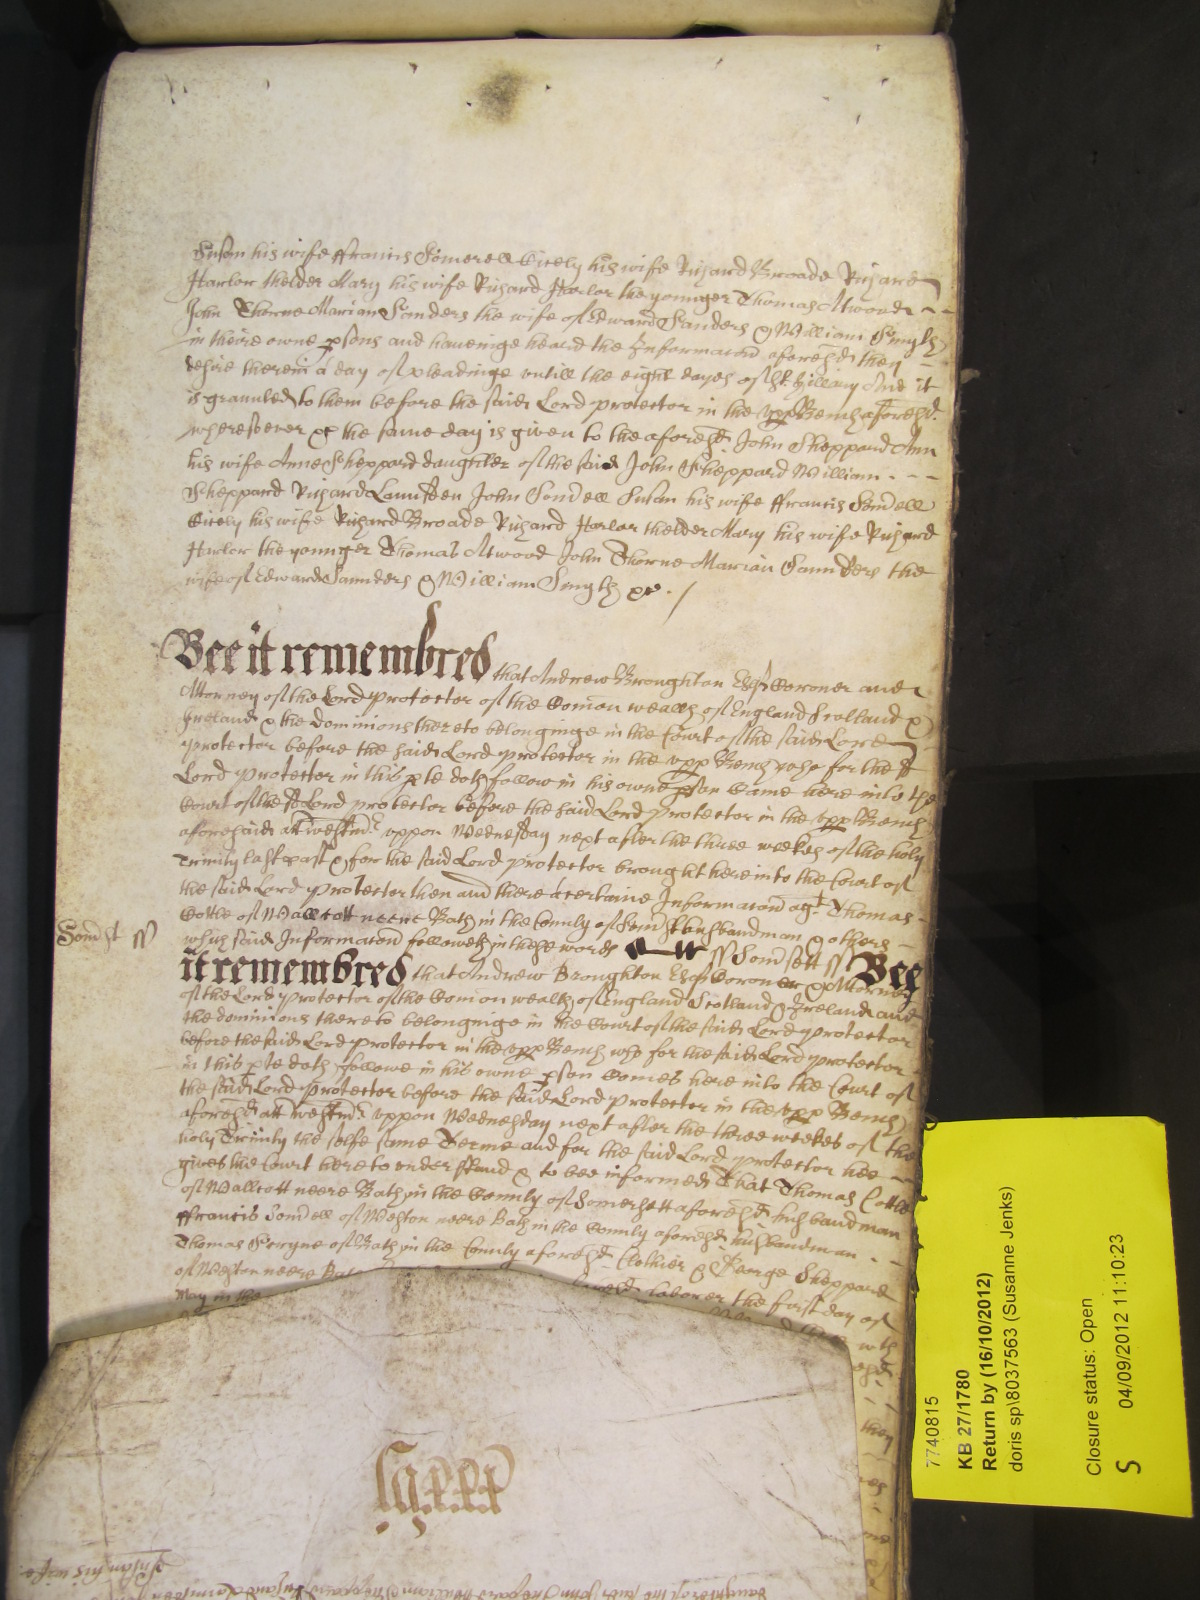 Susan his wife ffrancis Somerell Cicely his wife Richard Broade Richard
Harlor thelder Mary his wife Richard Harlor the younger Thomas Atwood
John Thorne Marian Sanders the wife of Edward Sanders & William Smyth
in theire owne psons and haveinge heard the Informacon aforesd they
desire therein a day of pleadinge untill the eight dayes of St Hillary And it
is graunted to them before the said Lord Protector in the upp Bench aforesd
wheresoever &c the same day is given to the aforesd John Sheppard Ann
his wife Anne Sheppard daughter of the said John Sheppard William
Sheppard Richard Lansden John Somell Susan his wife ffrancis Somell
Cicely his wife Richard Broade Richard Harlor thelder Mary his wife Richard
Harlor the younger Thomas Atwood John Thorne Marian Saunders the
wife of Edward Saunders & William Smyth &c. /
Bee it remembred that Andrew Broughton Esqr Coroner and
Attorney of the Lord Protector of the Comon wealth of England Scotland &
Ireland & the dominions thereto belonginge in the Court of the said Lord
Protector before the said Lord Protector in the upp Bench who for the sd
Lord Protector in this pte doth follow in his owne pson Came here into the
Court of the sd Lord Protector before the said Lord Protector in the upp Bench
aforesaid att Westmr uppon Wednesday next after the three weekes of the holy
Trinity last past & for the said Lord Protector brought here into the Court of
the said Lord Protector then and there a certaine Informacon agt Thomas
Somst ss
Cottle of Wallcott neere Bath in the County of Somst husbandman & others
which said Informacon followeth in these words ss Somsett ss Bee
it remembred that Andrew Broughton Esqr Coroner & Attorney
of the Lord Protector of the Comon wealth of England Scotland & Ireland and
the dominions thereto belonginge in the Court of the said Lord Protector
before the said Lord Protector in the upp Bench who for the said Lord Protector
in this pte doth followe in his owne pson Comes here into the Court of
the said Lord Protector before the said Lord Protector in the upp Bench
aforesd att Westmr uppon Wednesday next after the three weekes of the
holy Trinity the selfe same Terme and for the said Lord Protector hee
gives the Court here to understand & to bee informed That Thomas Cottle
of Wallcott neere Bath in the County of Somersett aforesd husbandman
ffrancis Somell of Weston neere Bath in the County aforesd husbandman
Thomas of Bath in the County aforesd Clothier & George Sheppard
of Weston neere Bath laborer the first day of
May in the
with
they
7740815
KB 27/1780
Return by (16/10/2012)
doris sp\8037563 (Susanne Jenks)
Closure status: Open
S 04/09/2012 11:10:23